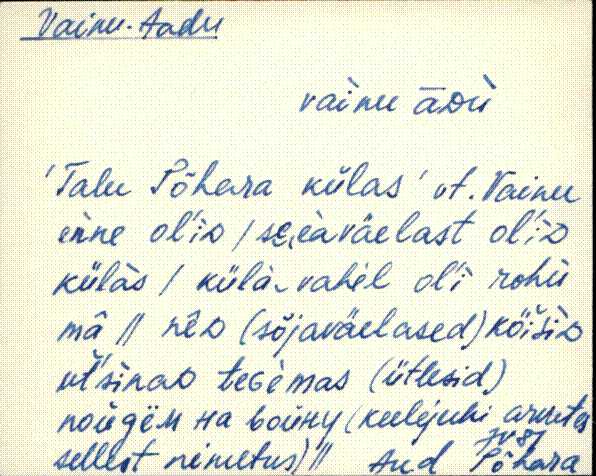 Vainu-Aadu
vàinu āᴅù
'Talu Põhara külas' vt. Vainu
enne ol'iᴅ / seèaväelast ol'iᴅ
külàs / külà vahèl ol'ì rohù
mâ // nêᴅ (sõjaväelased) köišìᴅ
üt'sinaᴅ teɢèmas (ütlesid)
пойдём на войну (keelejuhi arvates
sellest nimetus) // Aud Põhara